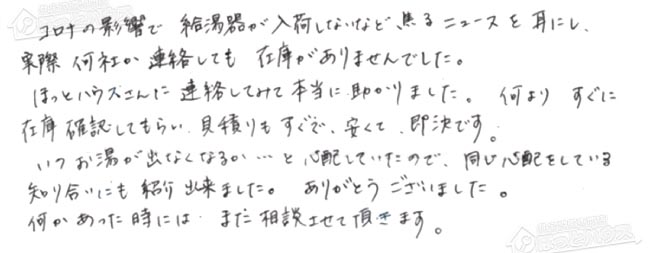 コロナの影響で 給湯器が入荷しないなど焦るニュースを耳にし、
実際 何社か連絡しても 在庫がありませんでした。
ほっとハウスさんに 連絡してみて本当に助かりました。 何より すぐに
在庫確認してもらい、見積りもすぐで、安くて、即決です。
いつお湯が出なくなるか…と心配していたので、同じ心配をしている
知り合いにも 紹介出来ました。 ありがとうございました。
何かあった時には また相談させて頂きます。